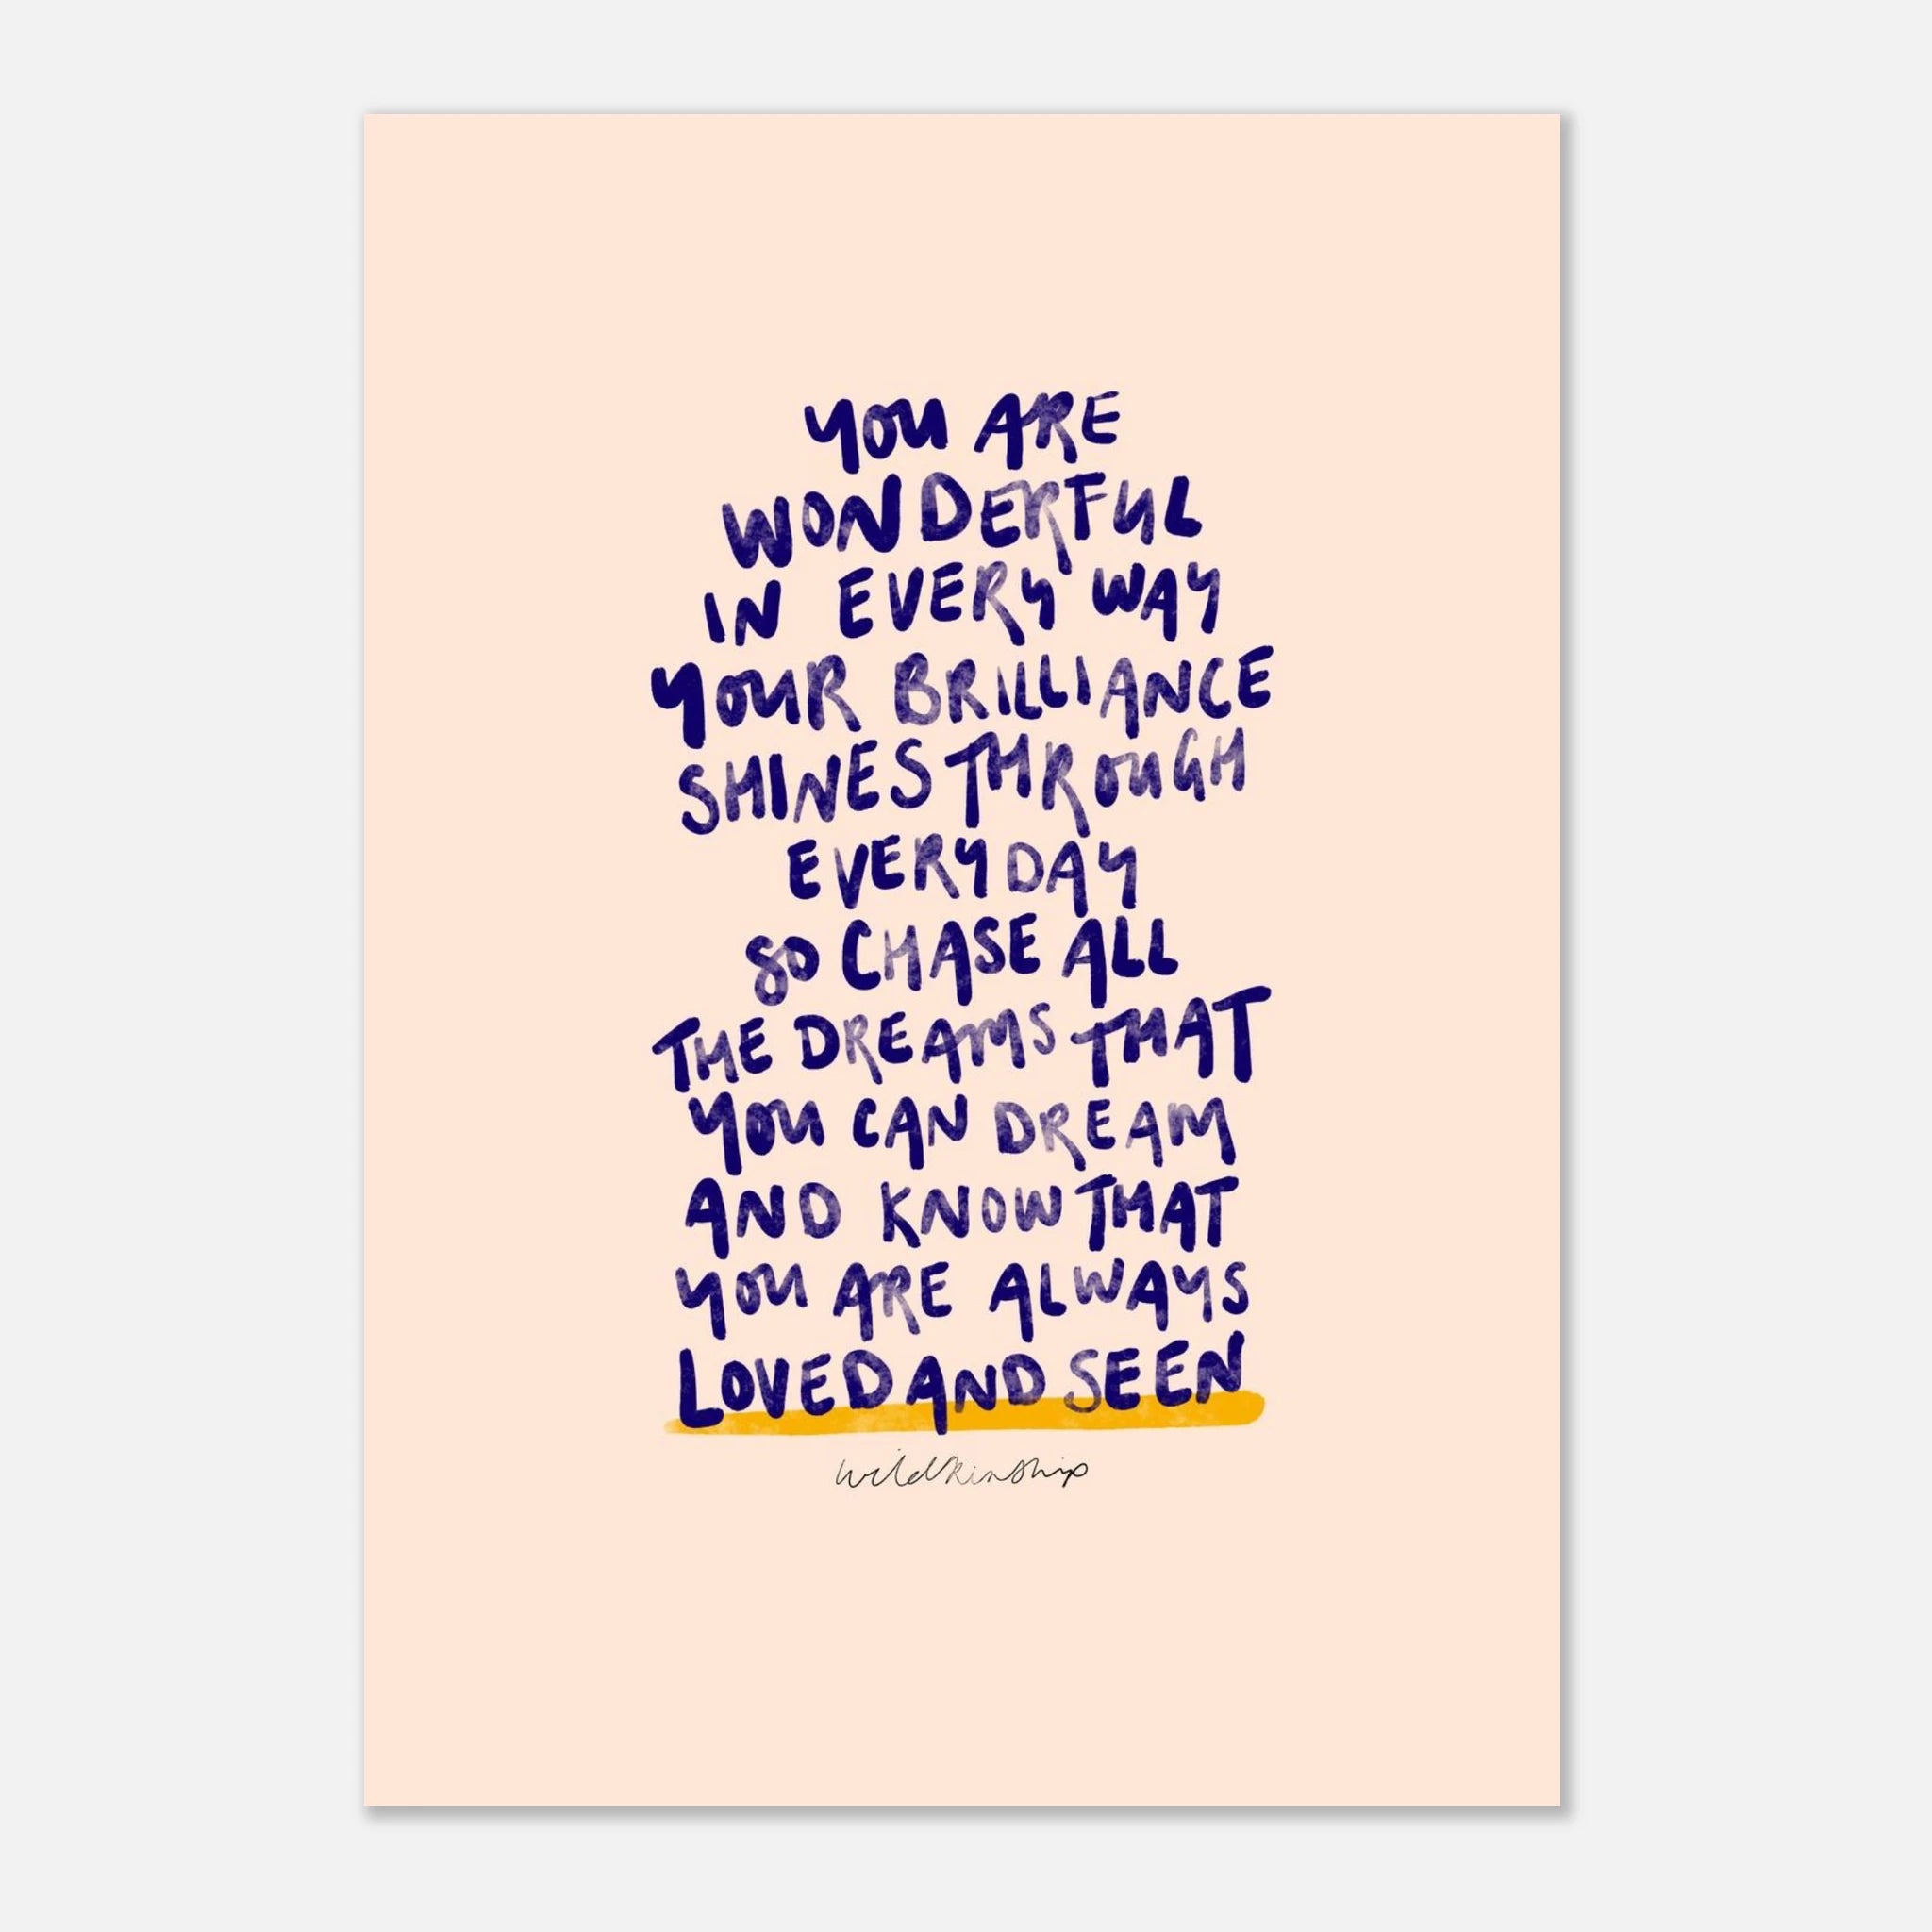 YOU ARE
WONDERFUL
IN EVERY WAY
YOUR BRILLIANCE
SHINES THROUGH
EVERY DAY
SO CHASE ALL
THE DREAMS THAT
YOU CAN DREAM
AND KNOW THAT
YOU ARE ALWAYS
LOVED AND SEEN
wildkinship